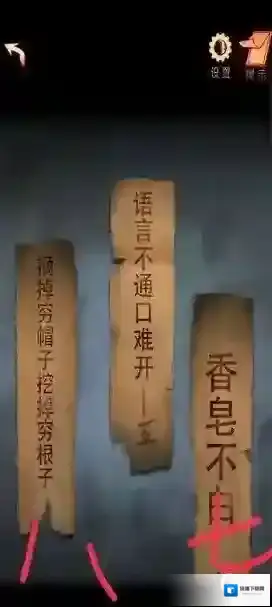 设置
提示
摘掉穷帽子挖掉穷根子
语言不通口难开一五
香皂不白
八
七
快速下载网